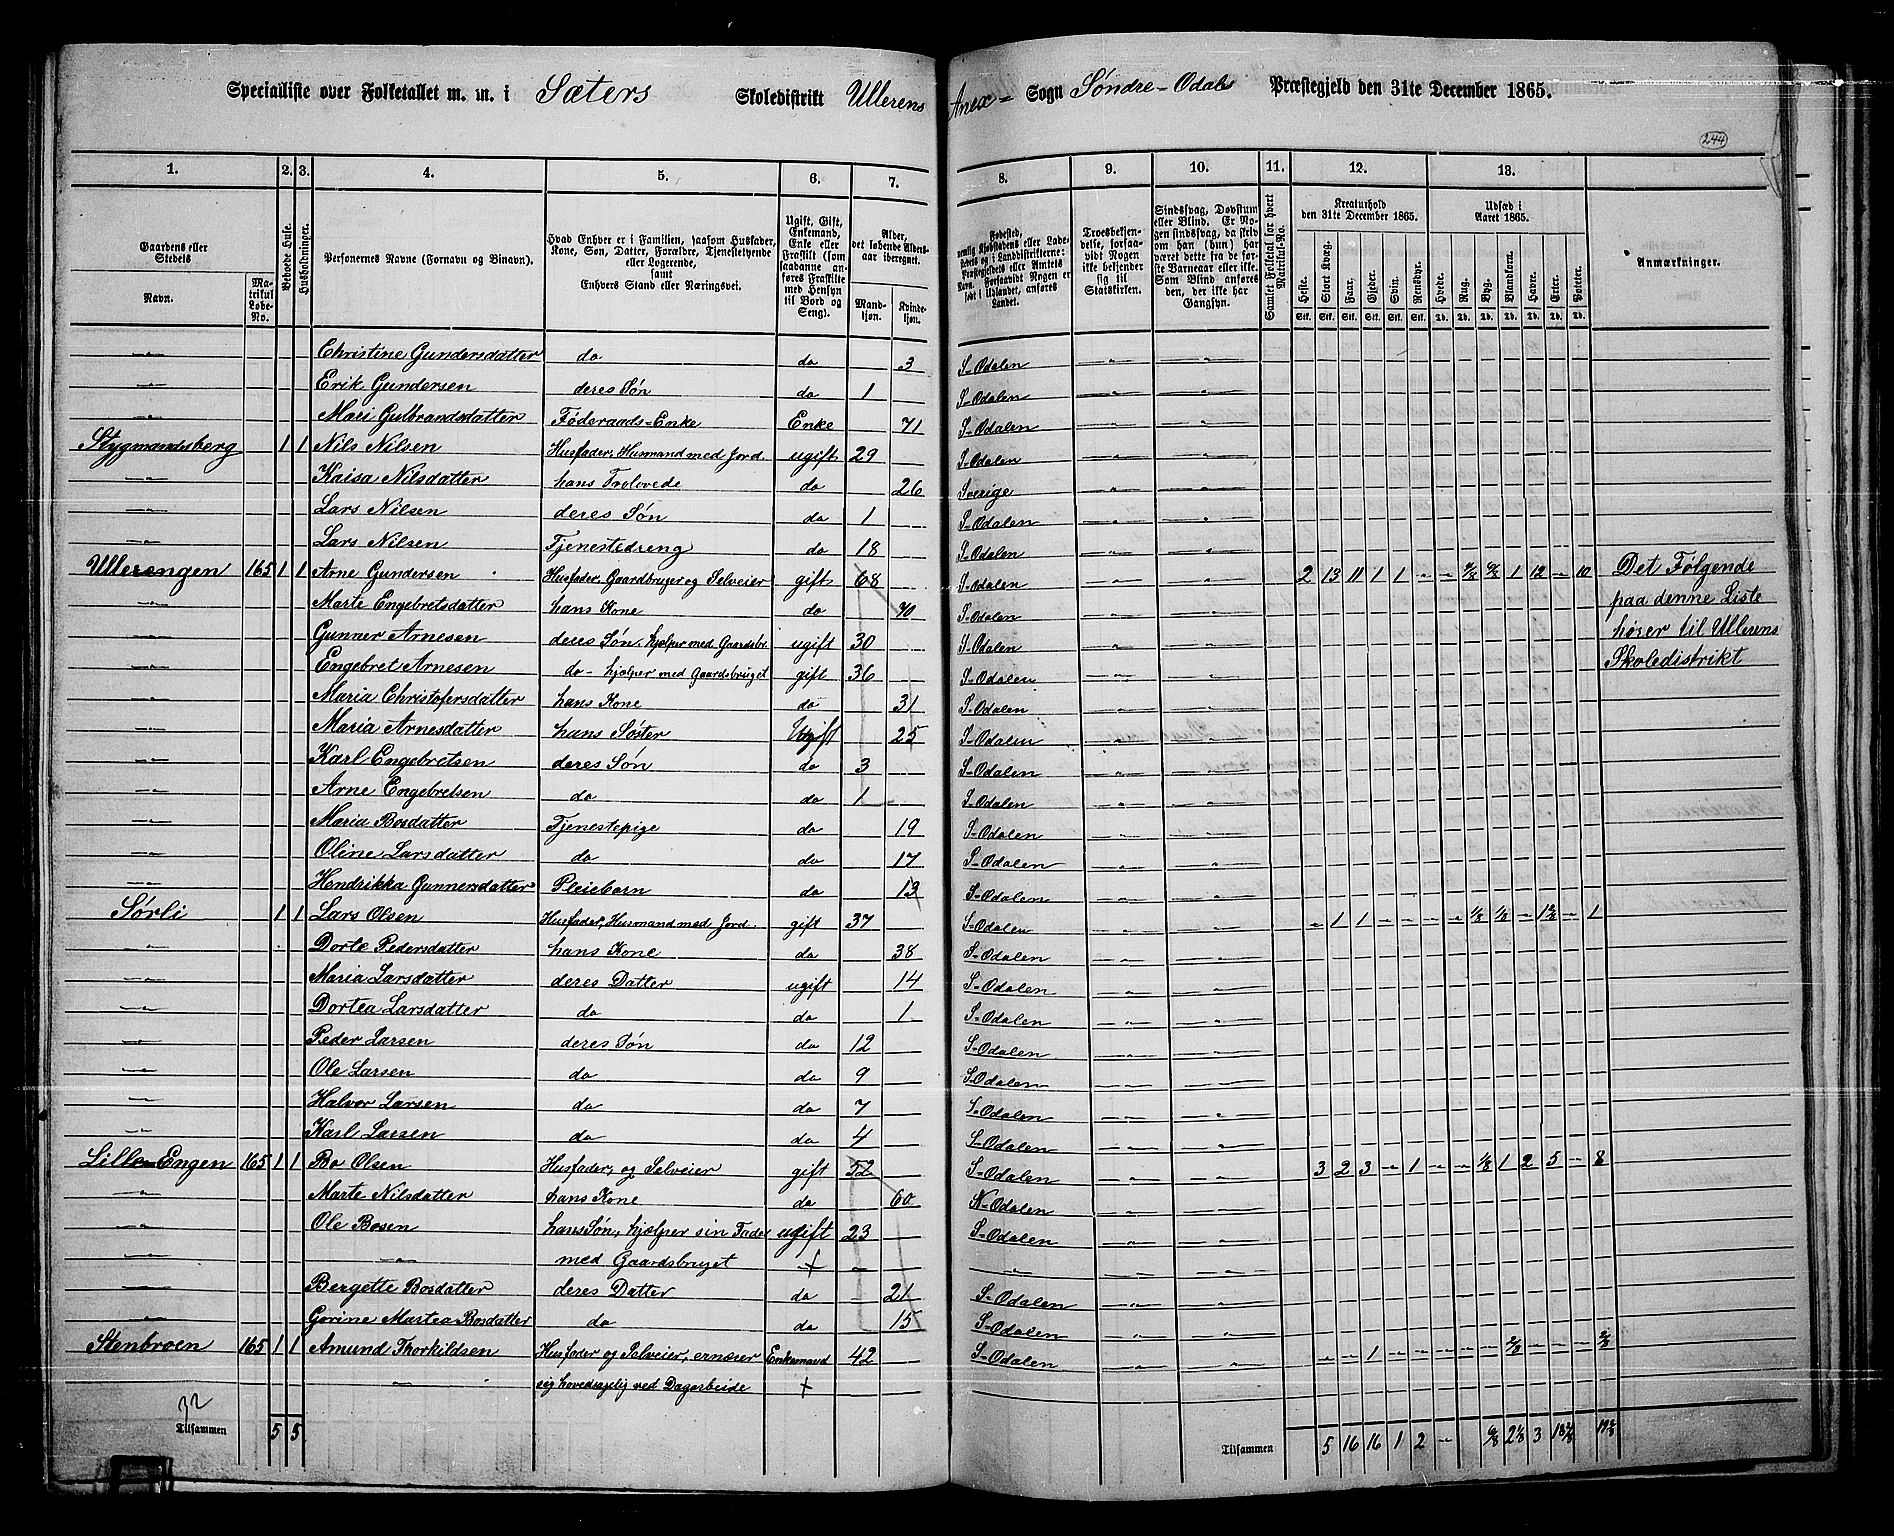 Specialliste over Folketallet m. m. i Sæters Skoledistrikt Ullerens Anex- Sogn Søndre-Odals Præstegjeld den 31te December 1865.
244
1. 2. 3. 4. 5. 6. 7. 8. 9. 10. 11. 12. 13.
Gaardens eller Stedets
Navn.
Matrikul Løbe-No.
Beboede Huse.
Husholdninger.
Personernes Navne (Fornavn og Binavn).
Hvad Enhver er i Familien, saasom Husfader, Kone, Søn, Datter, Forældre, Tjenestetyende eller Logerende, samt Enhvers Stand eller Næringsvei.
Ugift, Gift, Enkemand, Enke eller Fraskilt (som saadanne anføres Fraskilte med Hensyn til Bord og Seng).
Alder, det løbende Aldersaar iberegnet.
Mandkjøn.
Kvindekjøn.
Troesbekjendelse, forsaavidt Nogen ikke bekjender sig til Statskirken.
Sindssvag, Døvstum eller Blind. Er Nogen sindssvag, da skriv om han (hun) har været dette fra første Barneaar eller ikke. Som Blind anføres den, der ikke har Gangsyn.
Samlet Folketal for hvert Matrikul-No.
Kreaturhold den 31te December 1865.
Udsæd i Aaret 1865.
Heste. Stort Kvæg. Faar. Gjeder. Svin. Rensdyr. Hvede. Rug. Byg. Blandkorn. Havre. Erter. Poteter.
Anmærkninger.
Christine Gundersdatter do do 3 S-Odalen
Erik Gundersen deres Søn do 1 S-Odalen
Mari Gulbrandsdatter Føderaads-Enke Enke 71 S-Odalen
Stygmandsberg 1 1 Nils Nilsen Husfader, Husmand med Jord. ugift 29 S-Odalen
Kaisa Nilsdatter hans Trolovede do 26 Sverige
Lars Nilsen deres Søn do 1 S-Odalen
Lars Nilsen Tjenestedreng do 18 S-Odalen
Ullerengen 165 1 1 Arne Gundersen Husfader, Gaardbruger og Selveier gift 68 S-Odalen 2 13 11 1 1 1 12 10 Det Følgende
Marte Engebretsdatter hans Kone do 70 S-Odalen paa denne Liste
Gunner Arnesen deres Søn, hjælper med Gaardsbr. ugift 30 S-Odalen hører til Ullerens
Engebret Arnesen do - hjælper med Gaardsbruget gift 36 S-Odalen Skoledistrikt
Maria Christofersdatter hans Kone do 31 S-Odalen
Maria Arnesdatter hans Søster Ugift 25 S-Odalen
Karl Engebretsen deres Søn do 3 S-Odalen
Arne Engebretsen do do 1 S-Odalen
Maria Bosdatter Tjenestepige do 19 S-Odalen
Oline Larsdatter do do 17 S-Odalen
Hendrikka Gunnersdatter Pleiebarn do 13 S-Odalen
Sørli 1 1 Lars Olsen Husfader, Husmand med Jord. gift 37 S-Odalen 1 1 1
Dorte Pedersdatter hans Kone do 38 S-Odalen
Maria Larsdatter deres Datter ugift 14 S-Odalen
Dortea Larsdatter do do 1 S-Odalen
Peder Larsen deres Søn do 12 S-Odalen
Ole Larsen do do 9 S-Odalen
Halvor Larsen do do 7 S-Odalen
Karl Larsen do do 4 S-Odalen
Lille-Engen 165 1 1 Bo Olsen Husfader, og Selveier gift 52 S-Odalen 3 2 3 1 1/8 1 2 5 8
Marte Nilsdatter hans Kone do 60 N-Odalen
Ole Bosen hans Søn, hjælper sin Fader ugift 23 S-Odalen
med Gaardsbruget
Bergette Bosdatter deres Datter do 21 S-Odalen
Gorine Martea Bosdatter do do 15 S-Odalen
Stenbroen 165 1 1 Amund Thorkildsen Husfader og Selveier, ernærer Enkemand 42 S-Odalen 1 2/8 2/8
sig hovedsagelig ved Dagarbeide
32
Tilsammen 5 5
Tilsammen 5 16 16 1 2 6/8 2 1/8 3 18 2/8 19 2/8